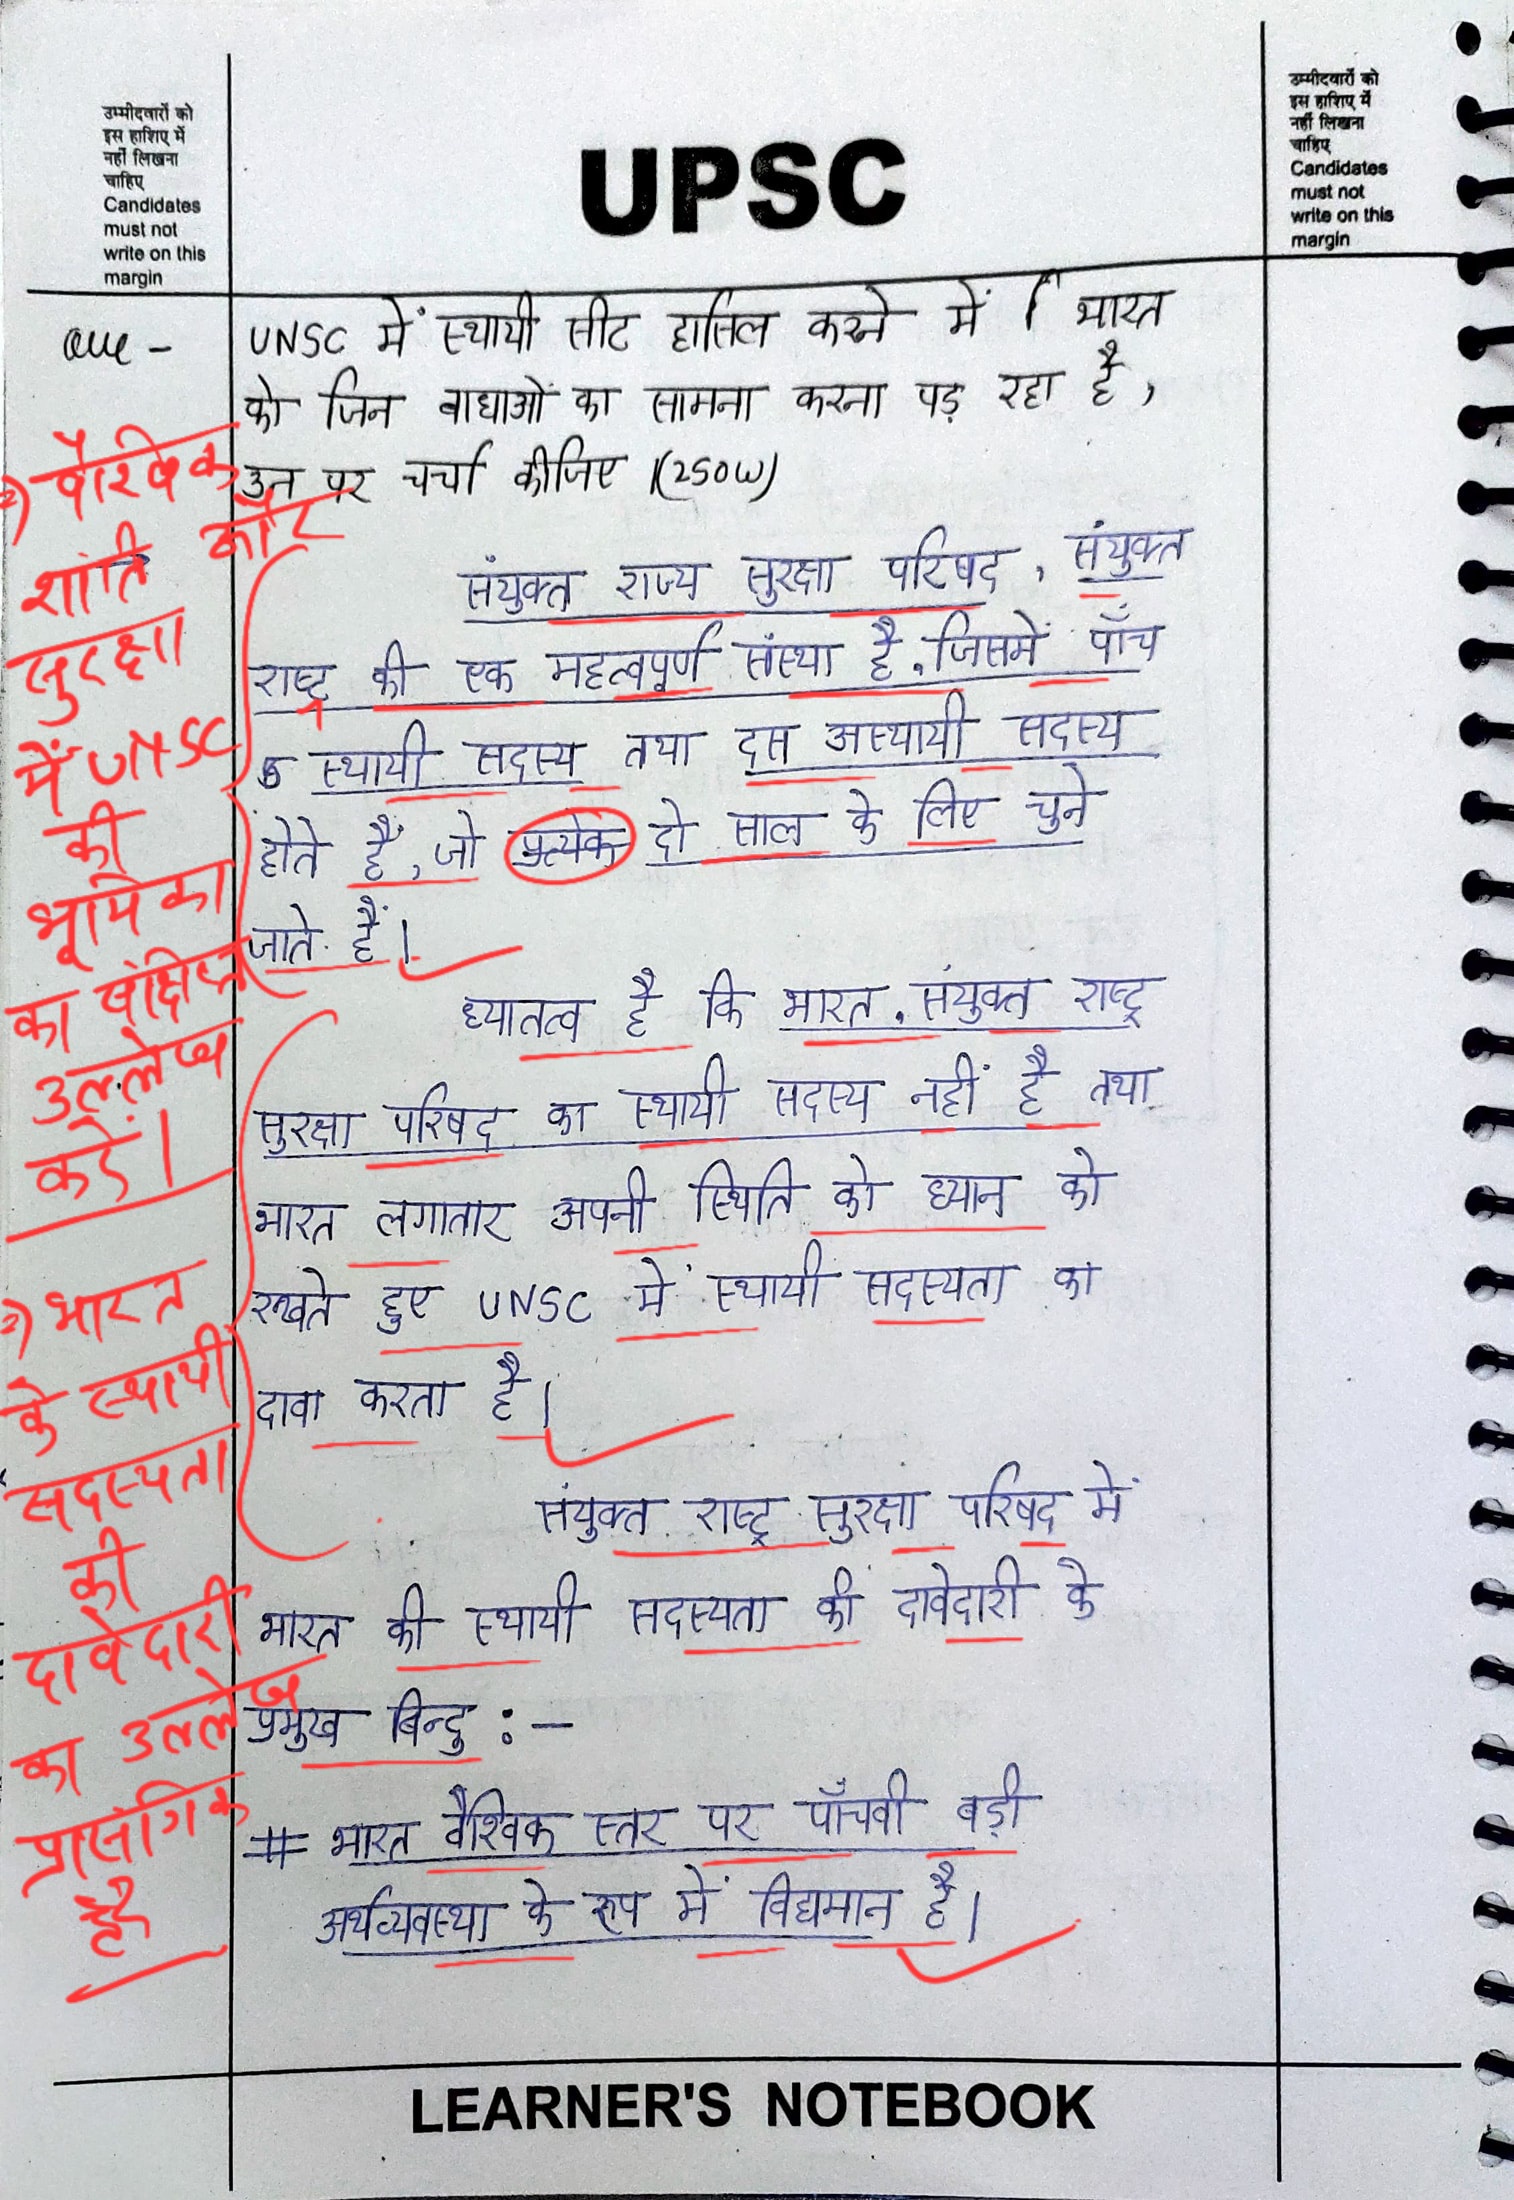 उम्मीदवारों को
इस हाशिए में
नहीं लिखना
चाहिए
Candidates
must not
write on this
margin
UPSC
उम्मीदवारों को
इस हाशिए में
नहीं लिखना
चाहिए
Candidates
must not
write on this
margin
Que -
UNSC में स्थायी सीट हासिल करने में भारत
को जिन बाधाओं का सामना करना पड़ रहा है,
उन पर चर्चा कीजिए।(250W)
संयुक्त राज्य सुरक्षा परिषद, संयुक्त
राष्ट्र की एक महत्वपूर्ण संस्था है, जिसमें पाँच
स्थायी सदस्य तथा दस अस्थायी सदस्य
होते हैं, जो प्रत्येक दो साल के लिए चुने
जाते हैं।
ध्यातत्व है कि भारत, संयुक्त राष्ट्र
सुरक्षा परिषद का स्थायी सदस्य नहीं है तथा
भारत लगातार अपनी स्थिति को ध्यान को
रखते हुए UNSC में स्थायी सदस्यता का
दावा करता है।
संयुक्त राष्ट्र सुरक्षा परिषद में
भारत की स्थायी सदस्यता की दावेदारी के
प्रमुख बिन्दु :-
# भारत वैश्विक स्तर पर पाँचवी बड़ी
अर्थव्यवस्था के रूप में विद्यमान है।
वैश्विक
शांति और
सुरक्षा
में UNSC
की
भूमिका
का संक्षिप्त
उल्लेख
करें।
भारत
के स्थायी
सदस्यता
की
दावेदारी
का उल्लेख
प्रासंगिक
है
LEARNER'S NOTEBOOK